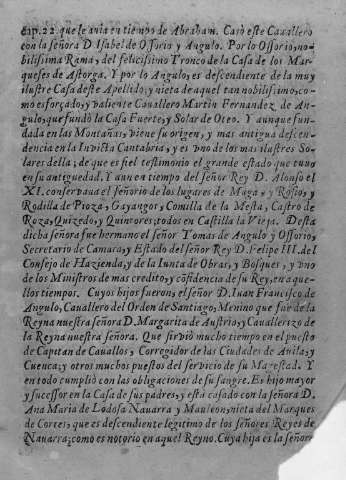 cap.22. que le avia en tiempo de Abraham. Casò este Cavallero
con la señora D. Isabel de Ossorio y Angulo. Por lo Ossorio, no-
bilissima Rama, y del felicissimo Tronco de la Casa de los Mar-
queses de Astorga. Y por lo Angulo, es descendiente de la muy
ilustre Casa deste Apellido; y nieta de aquel tan nobilissimo, co-
mo esforçado, y valiente Cauallero Martin Fernandez de An-
gulo, que fundò la Casa Fuerte, y Solar de Oteo. Y aunque fun-
dada en las Montañas, viene su origen, y mas antigua descen-
dencia en la Invicta Cantabria, y es vno de los mas ilustres So-
lares della; de que es fiel testimonio el grande estado que tuuo
en su antiguedad. Y aun en tiempo del señor Rey D. Alonso el
XI. conservaua el señorio de los lugares de Maga, y Rosio, y
Rodilla de Pioza, Gayangor, Comilla de la Mesta, Castro de
Roza, Quizedo, y Quintores; todos en Castilla la Vieja. Desta
dicha señora fue hermano el señor Tomas de Angulo y Ossorio,
Secretario de Camara, y Estado del señor Rey D. Felipe III. del
Consejo de Hazienda, y de la Iunta de Obras, y Bosques, y vno
de los Ministros de mas credito, y cõfidencia de su Rey, en aque-
llos tiempos. Cuyos hijos fueron, el señor D. Iuan Francisco de
Angulo, Cauallero del Orden de Santiago, Menino que fue de la
Reyna nuestra señora D. Margarita de Austria, y Cauallerizo de
la Reyna nuestra señora. Que sirviò mucho tiempo en el puesto
de Capitan de Cauallos, Corregidor de las Ciudades de Auila, y
Cuenca; y otros muchos puestos del servicio de su Magestad. Y
en todo cumpliò con las obligaciones de su sangre. Es hijo mayor
y successor en la Casa de sus padres, y està casado con la señora D.
Ana Maria de Lodosa Nauarra y Mauleon, nieta del Marques
de Cortes, que es descendiente legitimo de los señores Reyes de
Nauarra; como es notorio en aquel Reyno. Cuya hija es la señora